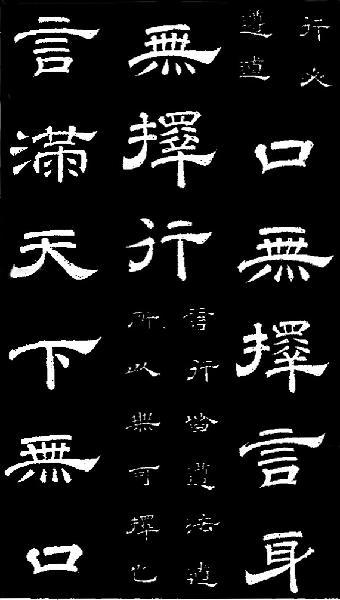 行必
遵道
口無擇言身
無擇行
言行皆遵法道
所以無可擇也
言滿天下無口